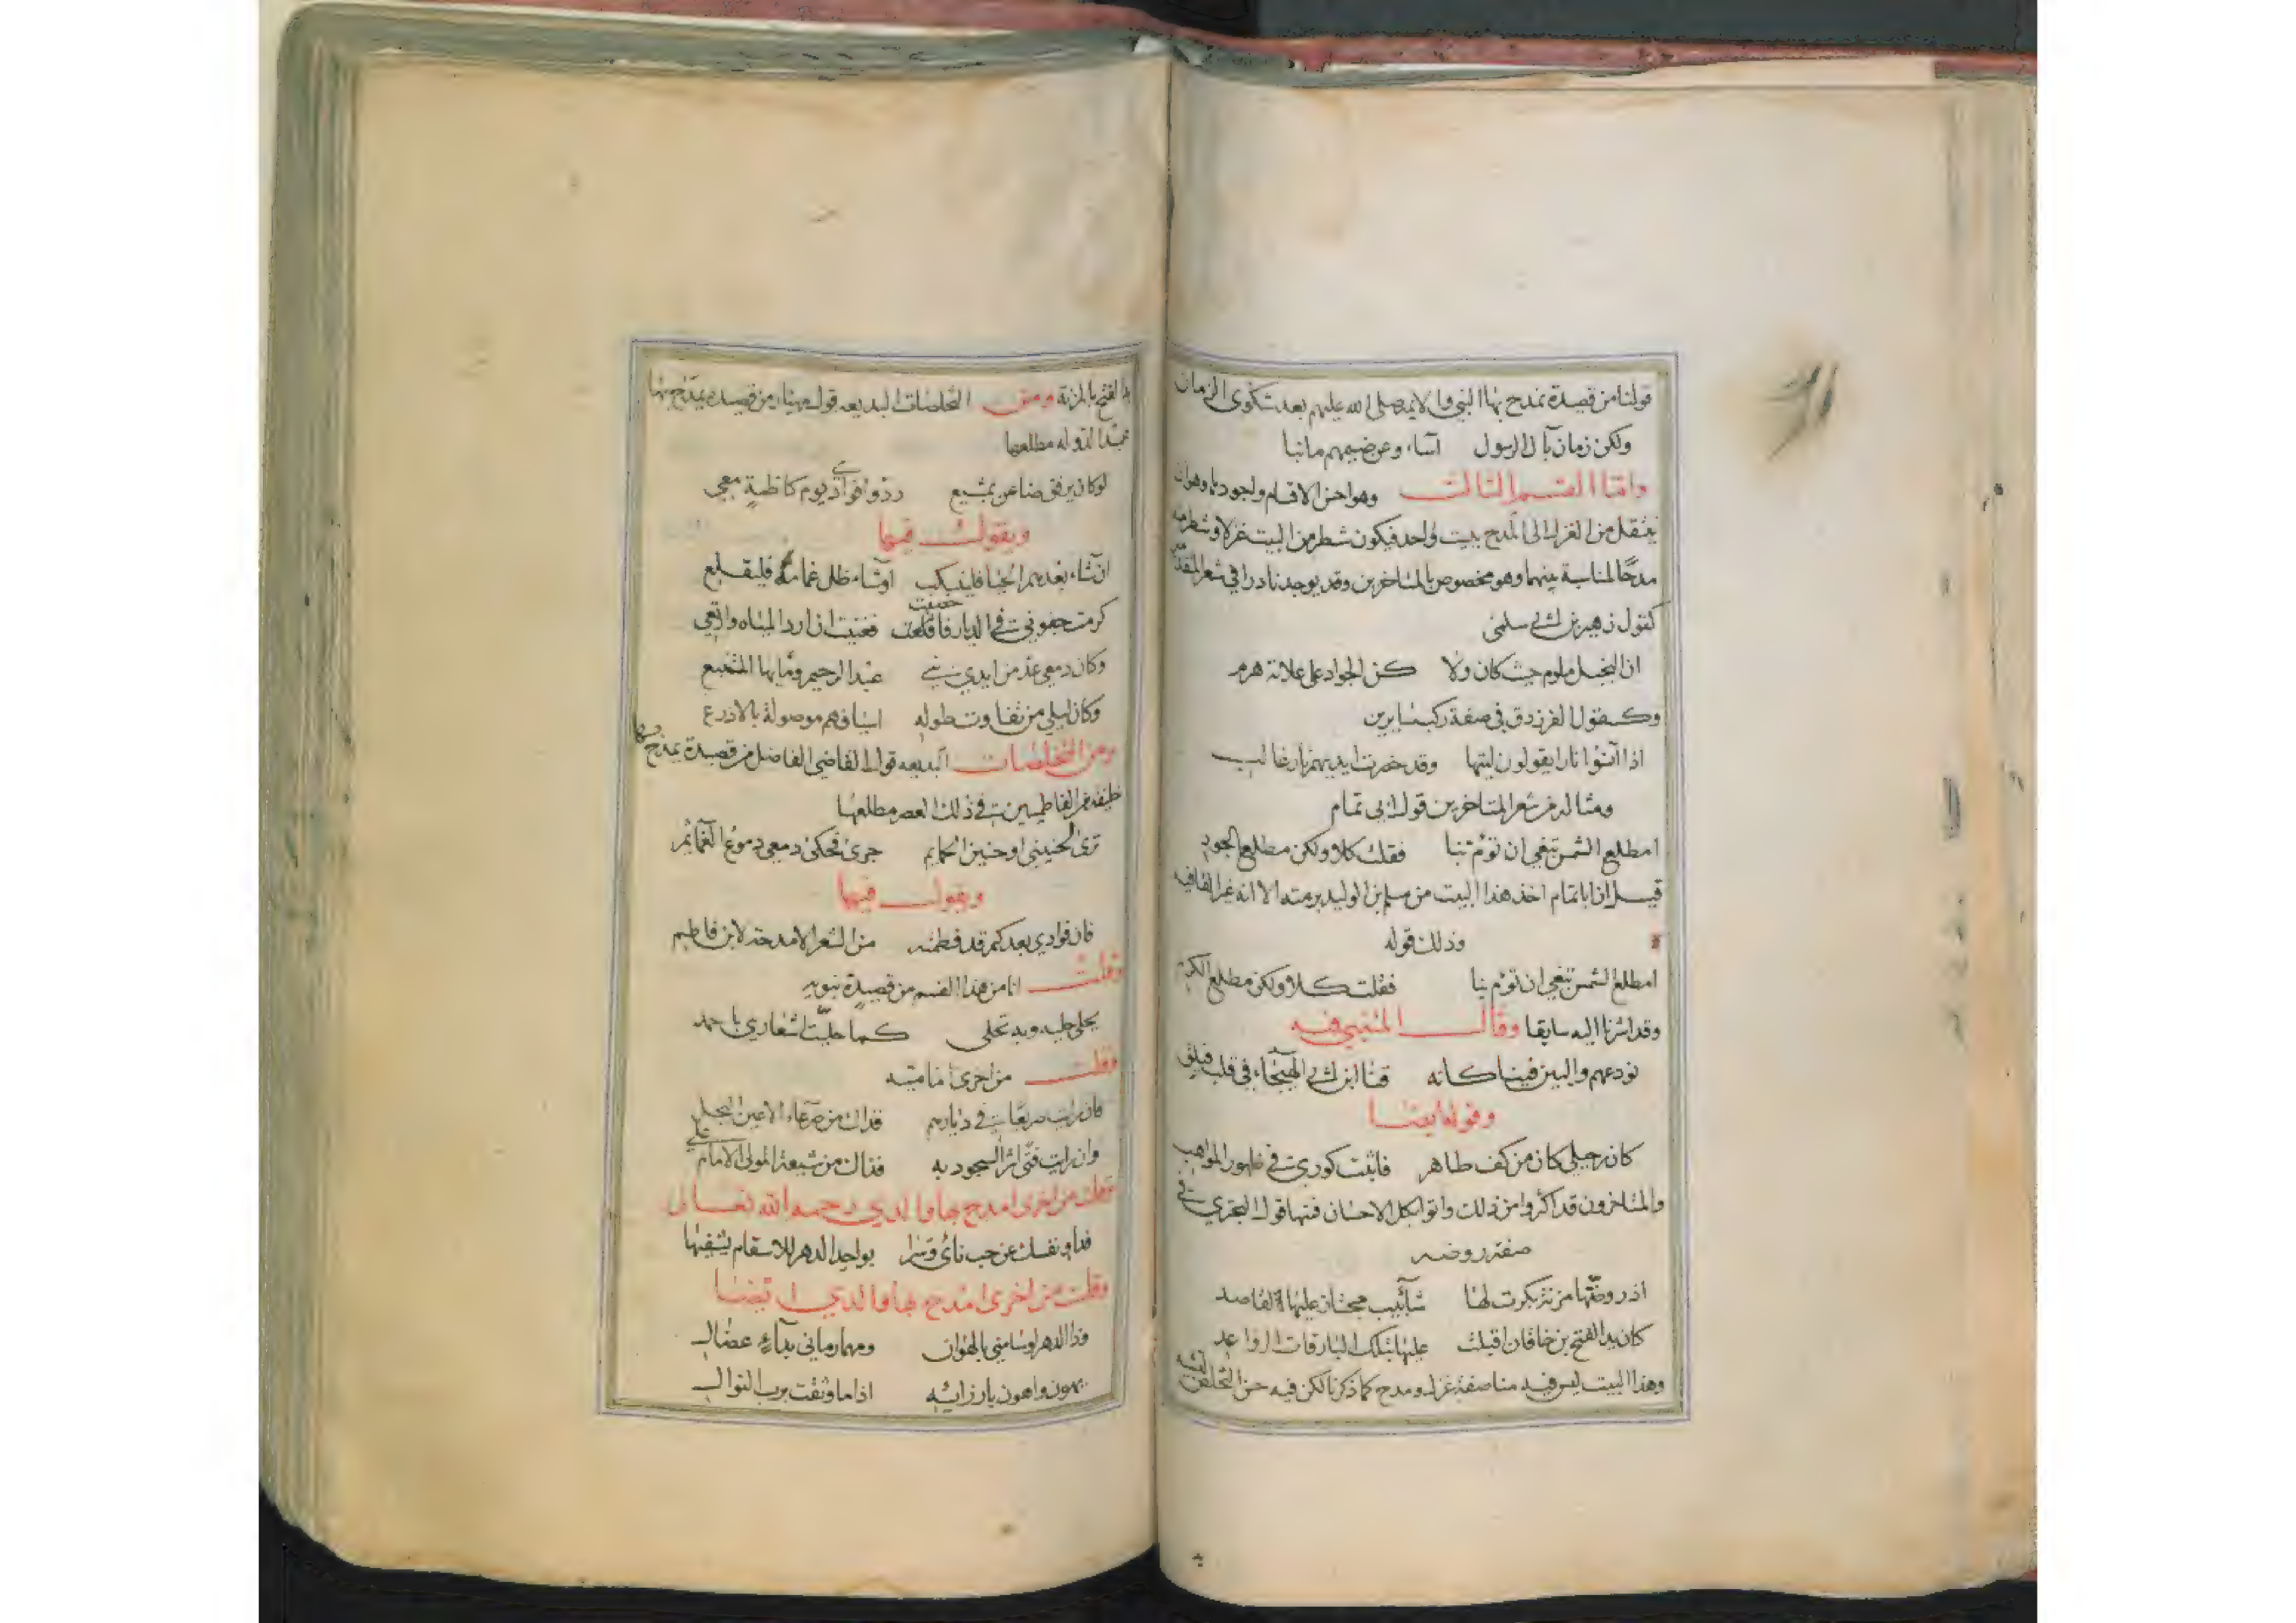 قولنا من قصيدة نمدح بها النبي والائمه صلى الله عليهم بعد شكوى الزمان
ولكن زمان بآل الرسول اساء وعن ضيمهم ما نبا
واما القسم الثالث وهو احسن الاقسام واجودها وهو ان
ينتقل من الغزل الى المدح ببيت واحد فيكون شطر من البيت غزلا وشطر منه
مدحا لمناسبة بينهما وهو مخصوص بالمتاخرين وقد يوجد نادرا في شعر المتقدمين
كقول زهير بن ابي سلمى
ان البخيل ملوم حيث كان ولا كن الجواد على علاته هرم
وكقول الفرزدق في صفة ركب سايرين
اذا آنسوا نارا يقولون ليتها وقد خصرت ايديهم نار غالب
ومثاله من شعر المتاخرين قول ابي تمام
امطلع الشمس تبغي ان تؤم بنا فقلت كلا ولكن مطلع الجود
قيل ان ابا تمام اخذ هذا البيت من مسلم بن الوليد برمته الا انه غير القافيه
وذلك قوله
امطلع الشمس تبغي ان تؤم بنا فقلت كلا ولكن مطلع الكرم
وقد اشرنا اليه سابقا وقال المتنبي فيه
نودعهم والبين فينا كانه قنا ابن ابي الهيجاء في قلب فيلق
وقوله ايضا
كان رحيلي كان من كف طاهر فاثبت كوري في ظهور المواهب
والمتاخرون قد اكثروا من ذلك واتوا بكل الاحسان فمنها قول البحتري في
صفة روضه
شآبيب مجتاز عليها وقاصد
كان يد الفتح بن خاقان اقبلت عليها بتلك البارقات الرواعد
وهذا البيت ليس فيه مناصفة غزل ومدح كما ذكرنا لكن فيه حسن التخلص
الفتح بالمزنة ومن التخلصات البديعه قول مهيار من قصيدة يمدح بها
عميد الدوله مطلعها
لو كان يرفق ضاعن بمشيع ردوا فوآدي يوم كاظمة معي
ويقول فيها
ان شاء بعدهم الحيا فلينسكب او شاء ظل غمامه فليقلع
كرمت جفوني في الديار فغنيت ان ارد المياه وارتعي
وكان دمعي من ايدي بني عبد الرحيم ومايها المتنبع
وكان ليلي من اسيافهم موصولة بالاذرع
ومن التخلصات البديعه قول القاضي الفاضل من قصيدة يمدح بها
خليفة من الفاطميين في ذلك العصر مطلعها
ترى لحنيني او حنين الحمايم جرى فحكى دمعي دموع الغمائم
ويقول فيها
فان فوادي بعدكم قد فطمته من الشعر الا مدحة لابن فاطم
وقلت انا من هذا القسم من قصيدة نبويه
كما حليت اشعاري باحمد
وقلت من اخرى اماميه
فان رايت صريعا في ديارهم فذاك من صرعاء الاعين النجل
وان رايت فتى اثر السجود به فذاك من شيعة المولى الامام علي
وقلت من اخرى امدح بها والدي رحمه الله تعالى
فداو نفسك عن حب نائ بواحد الدهر للاسقام يشفيها
وقلت من اخرى امدح بها والدي ايضا
وذا الدهر او سامني بالهوان ومهما رماني بداء عضال
يهون واهون بارزائه اذا ما وثقت برب النوال